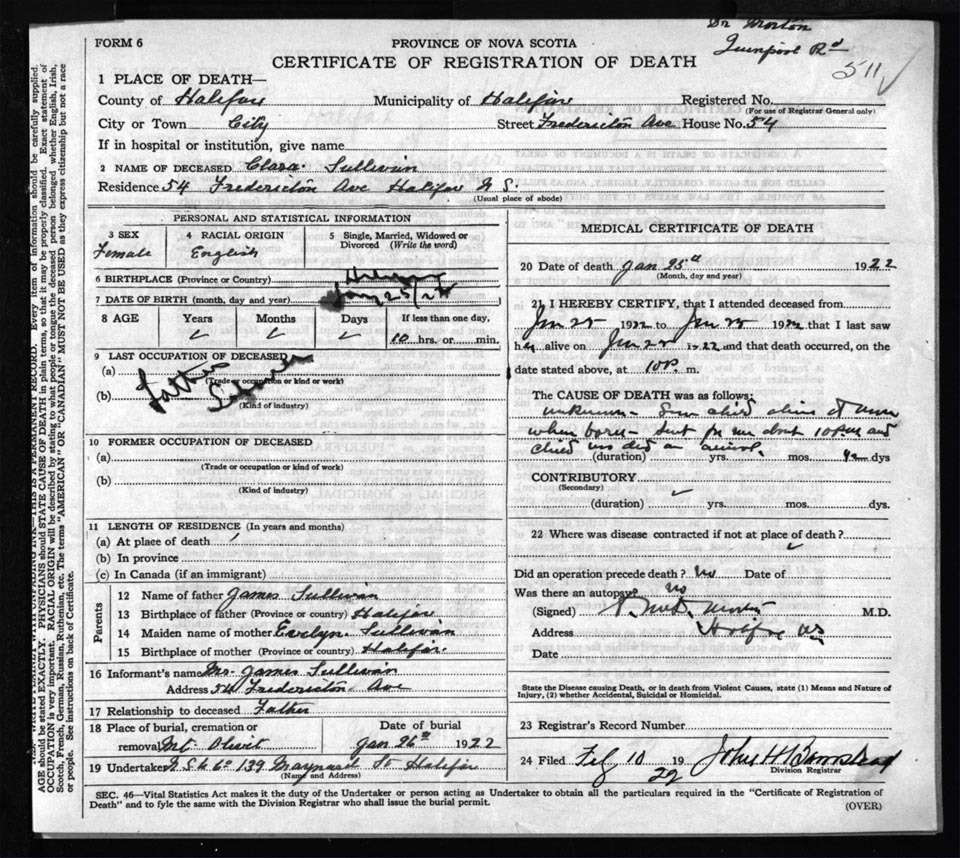 Dr Morton
Quinpool Rd
511
FORM 6
PROVINCE OF NOVA SCOTIA
CERTIFICATE OF REGISTRATION OF DEATH
1 PLACE OF DEATH—
County of Halifax Municipality of Halifax Registered No.
(For use of Registrar General only)
City or Town City Street Fredericton Ave House No. 54
If in hospital or institution, give name
2 NAME OF DECEASED Clara Sullivan
Residence 54 Fredericton Ave Halifax N S.
(Usual place of abode)
PERSONAL AND STATISTICAL INFORMATION
3 SEX 4 RACIAL ORIGIN 5 Single, Married, Widowed or
Divorced (Write the word)
Female English
6 BIRTHPLACE (Province or Country) Halifax
7 DATE OF BIRTH (month, day and year) Jany 25/22
8 AGE Years Months Days If less than one day,
10 hrs. or min.
9 LAST OCCUPATION OF DECEASED
(a) Father
(Trade or occupation or kind of work)
(b)
(Kind of industry)
10 FORMER OCCUPATION OF DECEASED
(a)
(Trade or occupation or kind of work)
(b)
(Kind of industry)
11 LENGTH OF RESIDENCE (In years and months)
(a) At place of death
(b) In province
(c) In Canada (if an immigrant)
Parents
12 Name of father James Sullivan
13 Birthplace of father (Province or country) Halifax
14 Maiden name of mother Evelyn Sullivan
15 Birthplace of mother (Province or country) Halifax
16 Informant's name Mr. James Sullivan
Address 54 Fredericton Ave
17 Relationship to deceased Father
18 Place of burial, cremation or Date of burial
removal Mt Olivet Jan 26th 1922
19 Undertaker 139 Maynard St Halifax
(Name and Address)
MEDICAL CERTIFICATE OF DEATH
20 Date of death Jan 25th 1922
(Month, day and year)
21 I HEREBY CERTIFY, that I attended deceased from
Jan 25 1922 to Jan 25 1922 that I last saw
h alive on Jan 25 1922 and that death occurred, on the
date stated above, at 10 P. m.
The CAUSE OF DEATH was as follows:
unknown - child alive
when born - sent for me about 10 P.M and
child was dead on arrival.
(duration) yrs. mos. dys
CONTRIBUTORY
(Secondary)
(duration) yrs. mos. dys.
22 Where was disease contracted if not at place of death?
Did an operation precede death? No Date of
Was there an autopsy? No
(Signed) Morton M.D.
Address Halifax NS
Date
State the Disease causing Death, or in death from Violent Causes, state (1) Means and Nature of
Injury, (2) whether Accidental, Suicidal or Homicidal.
23 Registrar's Record Number
24 Filed Feb 10 19 22 John H Barnstead
Division Registrar
SEC. 46—Vital Statistics Act makes it the duty of the Undertaker or person acting as Undertaker to obtain all the particulars required in the "Certificate of Registration of
Death" and to fyle the same with the Division Registrar who shall issue the burial permit.
(OVER)
Every item of information should be carefully supplied.
AGE should be stated EXACTLY. PHYSICIANS should STATE CAUSE OF DEATH in plain terms, so that it may be properly classified. Exact statement of
OCCUPATION is very important. RACIAL ORIGIN will be described by stating to what people or tongue the deceased person belonged whether English, Irish,
Scotch, French, German, Russian, Ruthenian, etc. The terms "AMERICAN" OR "CANADIAN" MUST NOT BE USED as they express citizenship but not a race
or people. See instructions on back of Certificate.